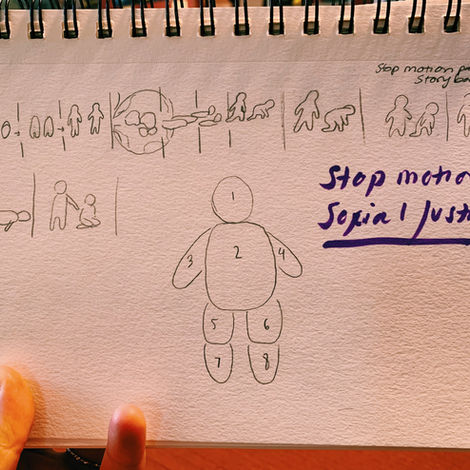 Stop motion pa
Story boa
Stop motio
Social Just
1
3 2 4
5 6
7 8